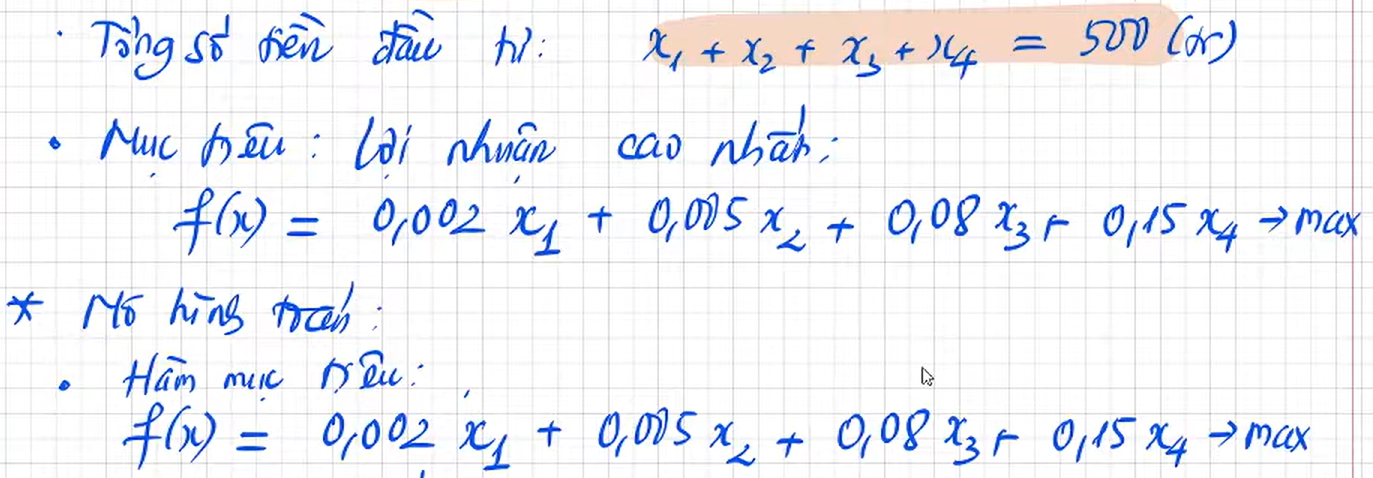 · Tổng số tiền đầu tư: x₁ + x₂ + x₃ + x₄ = 500 (tr)
• Mục tiêu: Lợi nhuận cao nhất:
f(x) = 0,002 x₁ + 0,005 x₂ + 0,08 x₃ + 0,15 x₄ → max
* Mô hình toán:
• Hàm mục tiêu:
f(x) = 0,002 x₁ + 0,005 x₂ + 0,08 x₃ + 0,15 x₄ → max